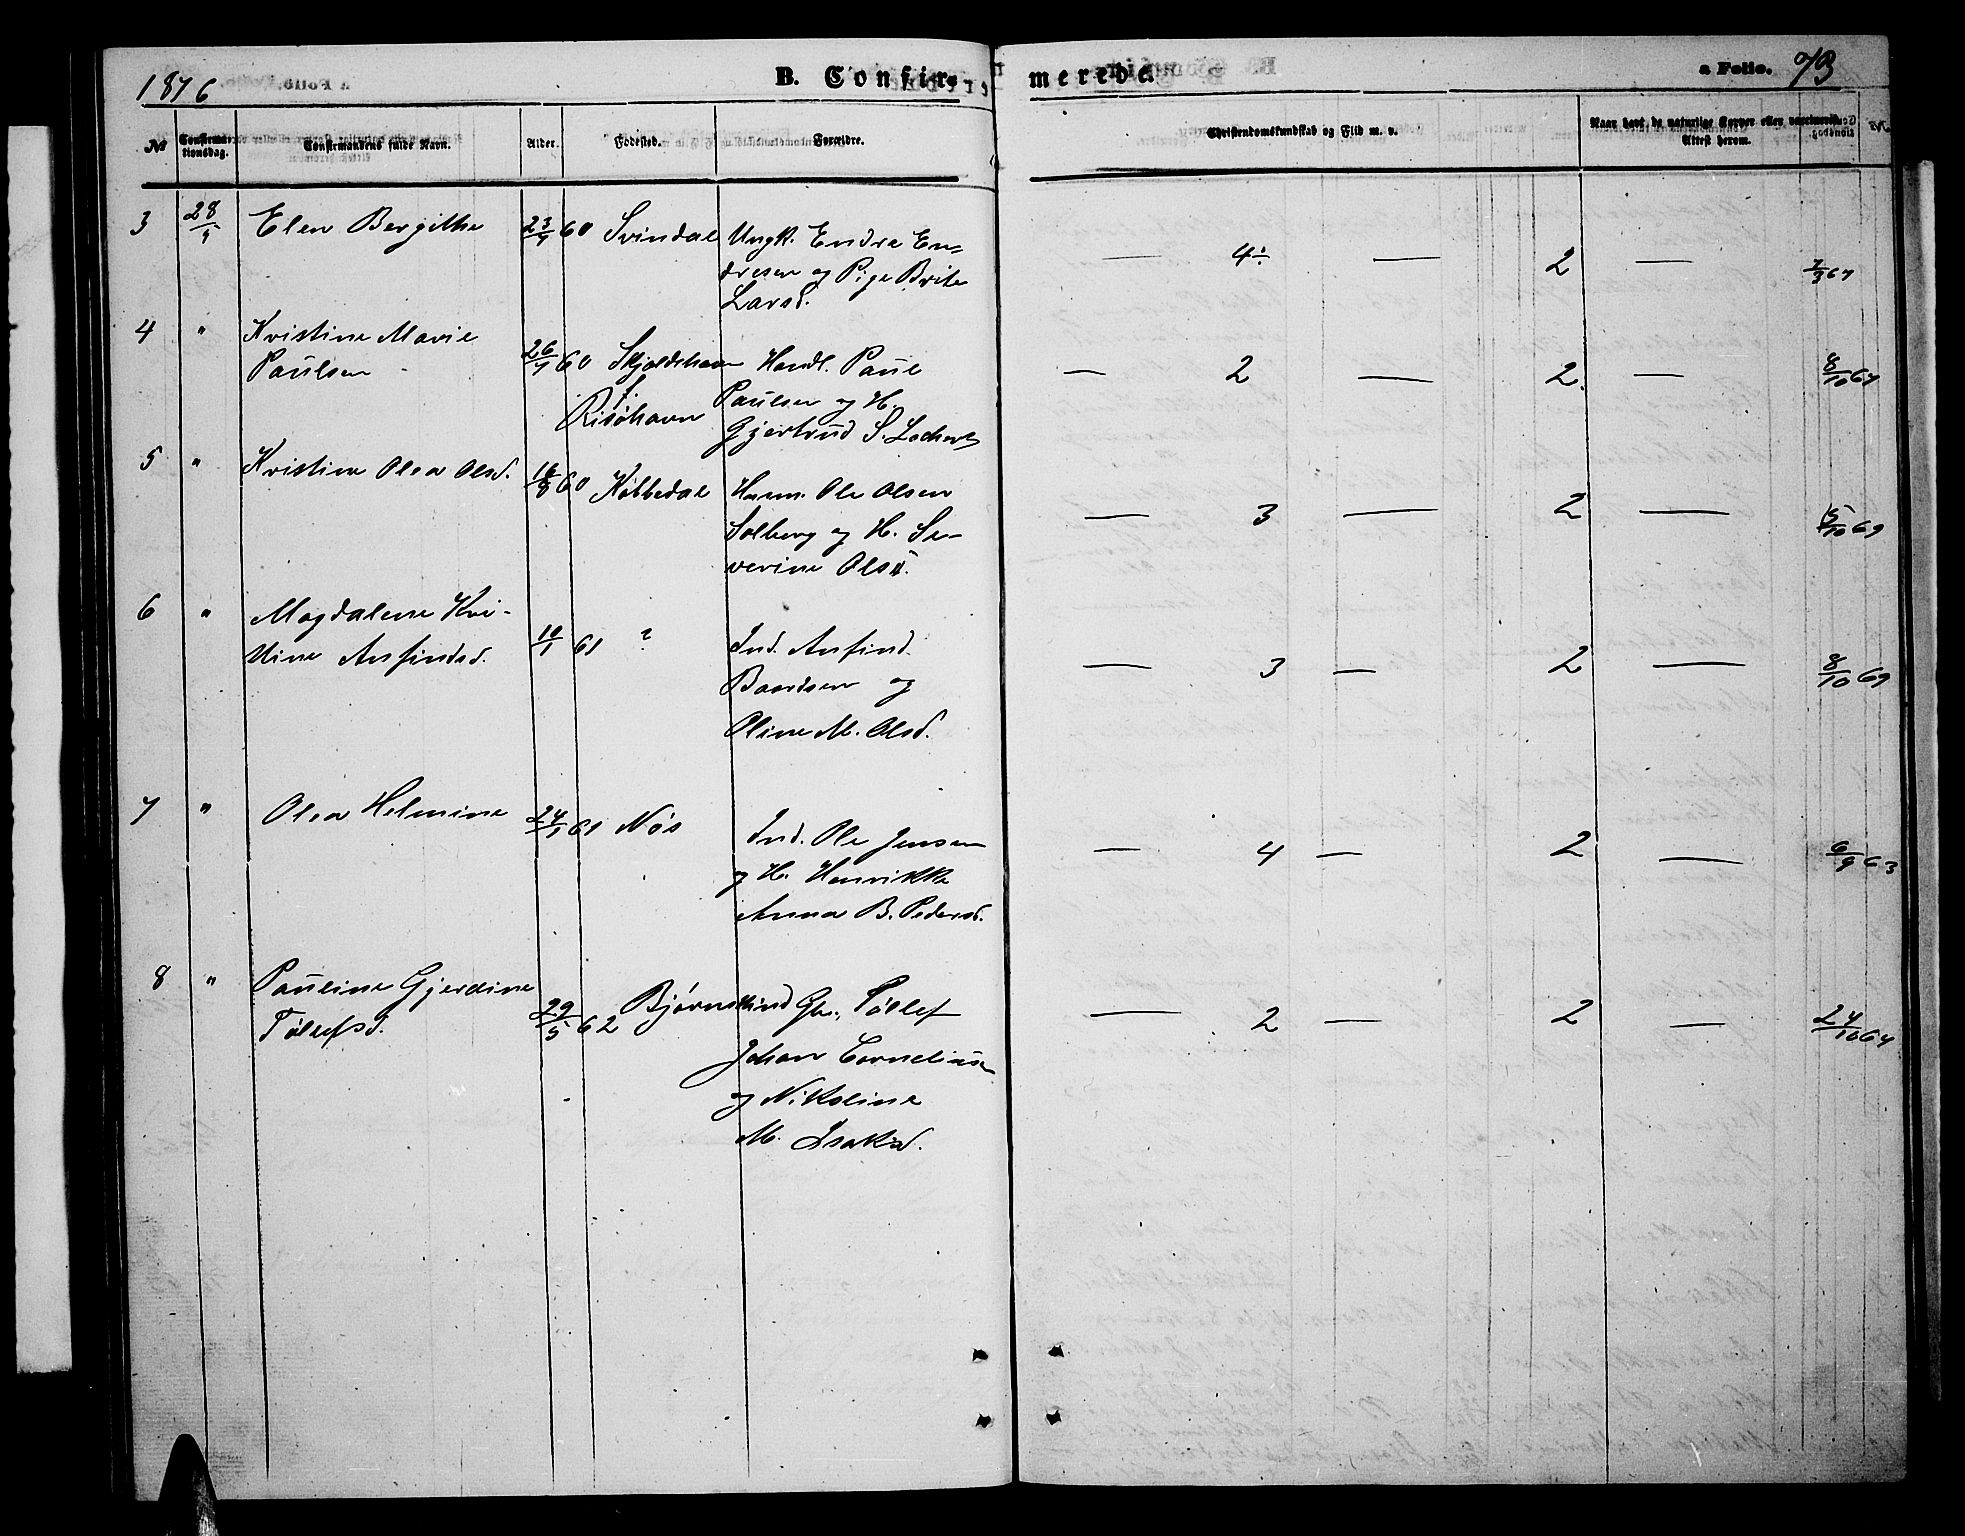 1876
B. Confirmerede.
a Folio. 73
№
Confirmationsdag.
Confirmandens fulde Navn.
Alder.
Fødested.
Forældre.
Christendomskundskab og Flid m. v.
Naar havt de naturlige Kopper eller vaccinerede. Attest herom.
3 28/5 Elen Bergithe 23/4 60 Svindal Ungk. Endre En-
dresen og Pige Brite
Larsd.
— 4÷ — 2 — 7/3 67
4 " Kristine Marie
Paulsen 26/4 60 Skjoldehavn
f.
Risøhavn
Handl. Paul
Paulsen og H.
Gjertrud S. Lockert
— 2 — 2. — 8/10 67
5 " Kristine Olea Olsd. 16/8 60 Kobbedal Huusm. Ole Olsen
Solberg og H. Se-
verine Olsd.
— 3 — 2 — 5/10 69
6 " Magdalene Kri-
stine Anfindsd. 10/1 61 ? Ind. Anfind
Baardsen og
Oline M. Olsd.
— 3 — 2 — 8/10 69
7 " Olea Helmine 24/1 61 Nøs Ind. Ole Jensen
og H. Henrikke
Anna B. Pedersd.
— 4 — 2 — 6/9 63
8 " Pauline Gjerdine
Tollefsd. 29/5 62 Bjørnskind Gbr. Tollef
Johan Cornelius
og Nikoline
M. Isaksd.
— 2 — 2 — 24/10 64